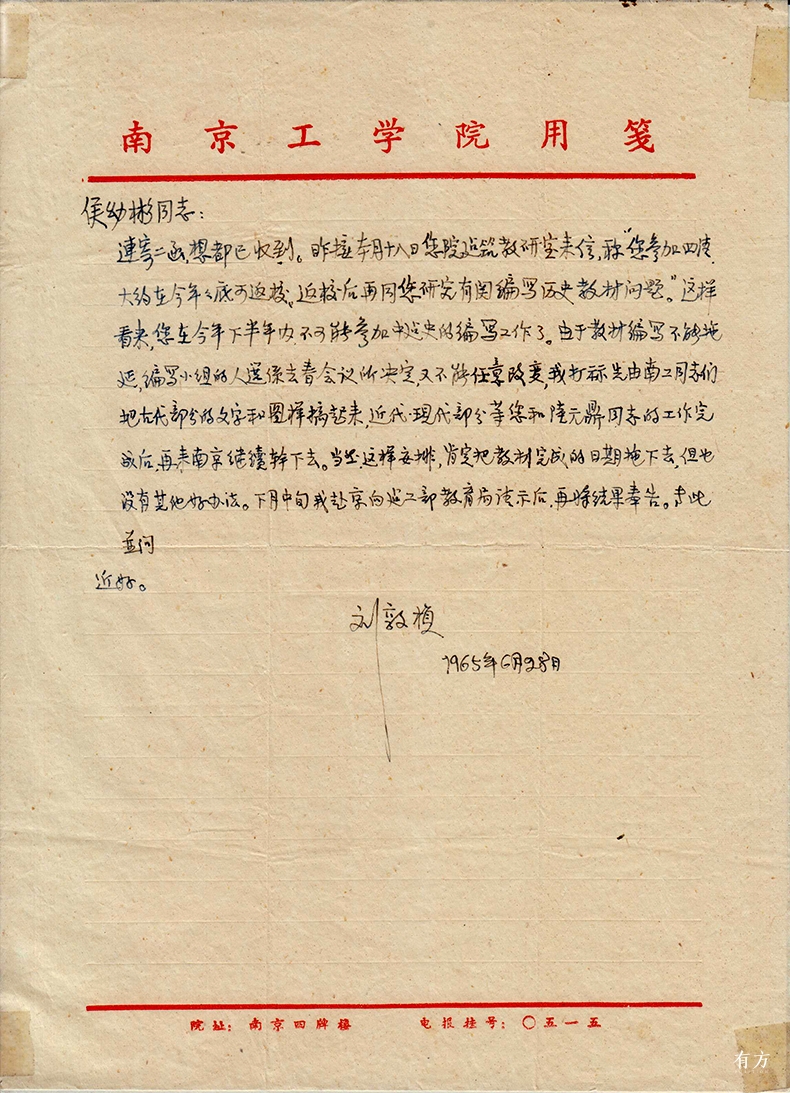 南京工学院用笺
侯幼彬同志：
連寄二函，想都已收到。昨接本月十八日您院建筑教研室来信，称“您参加四清，
大约在今年年底可返校。返校后再同您研究有関编写历史教材问题。”这样
看来，您在今年下半年内，不可能参加中建史的编写工作了。由于教材编写不能拖
延，编写小组的人選係去春会议所决定，又不能任意改变，我打祘先由南工同志们
把古代部分的文字和圖样搞起来，近代·现代部分等您和陸元鼎同志的工作完
成后，再来南京继續幹下去。当然这样安排，肯定把教材完成的日期拖下去，但也
没有其他好办法。下月中旬我赴京向建工部教育局请示后，再将结果奉告。专此
並问
近好。
刘敦楨
1965年6月28日
院址：南京四牌楼 电报挂号：〇五一五
有方